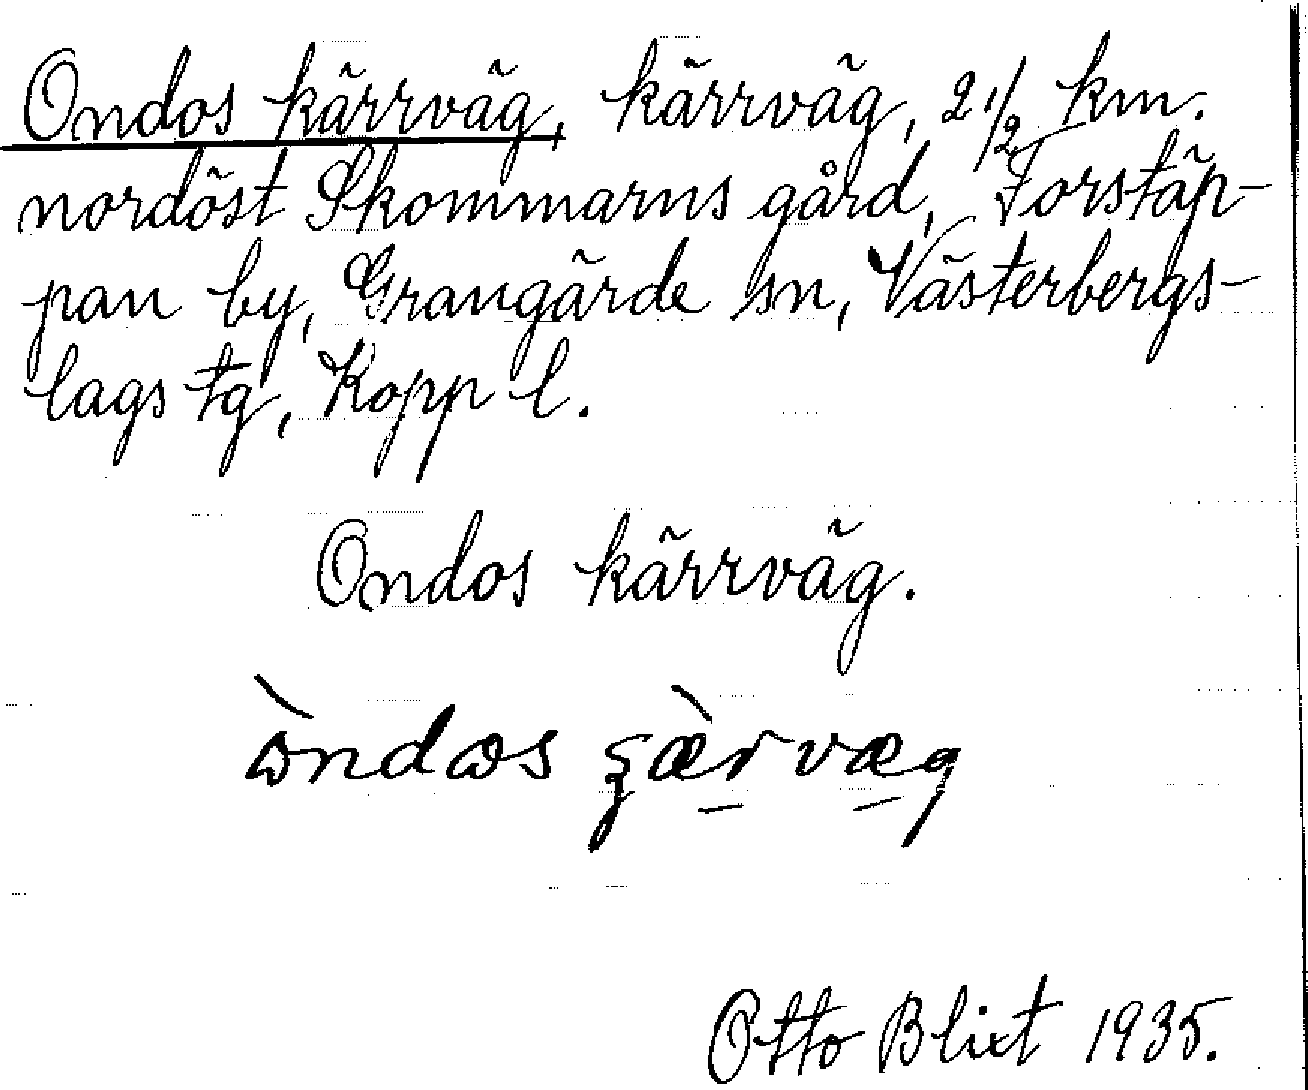 Ondos kärrväg, kärrväg, 2 1/2 km.
nordöst Skommarns gård, Torstäp-
pan by, Grangärde sn, Västerbergs-
lags tg, Kopp l.
Ondos kärrväg.
Otto Blixt 1935.